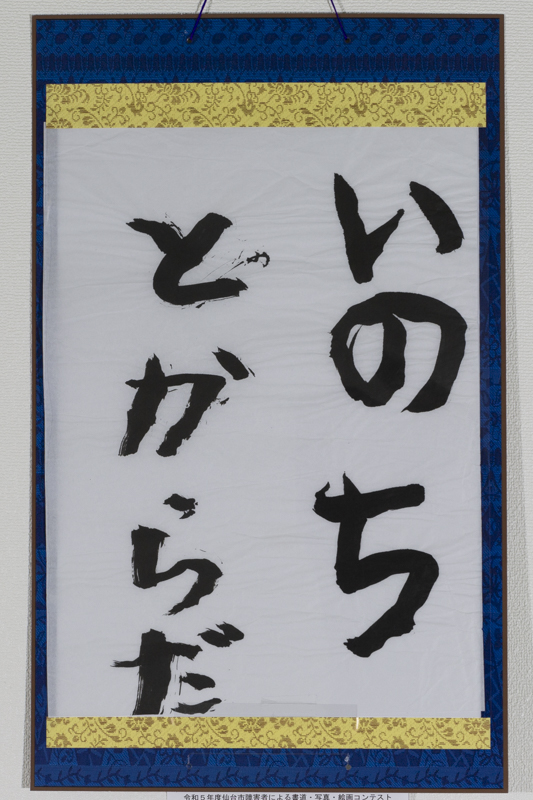 いのち
とからだ
令和5年度仙台市障害者による書道・写真・絵画コンテスト